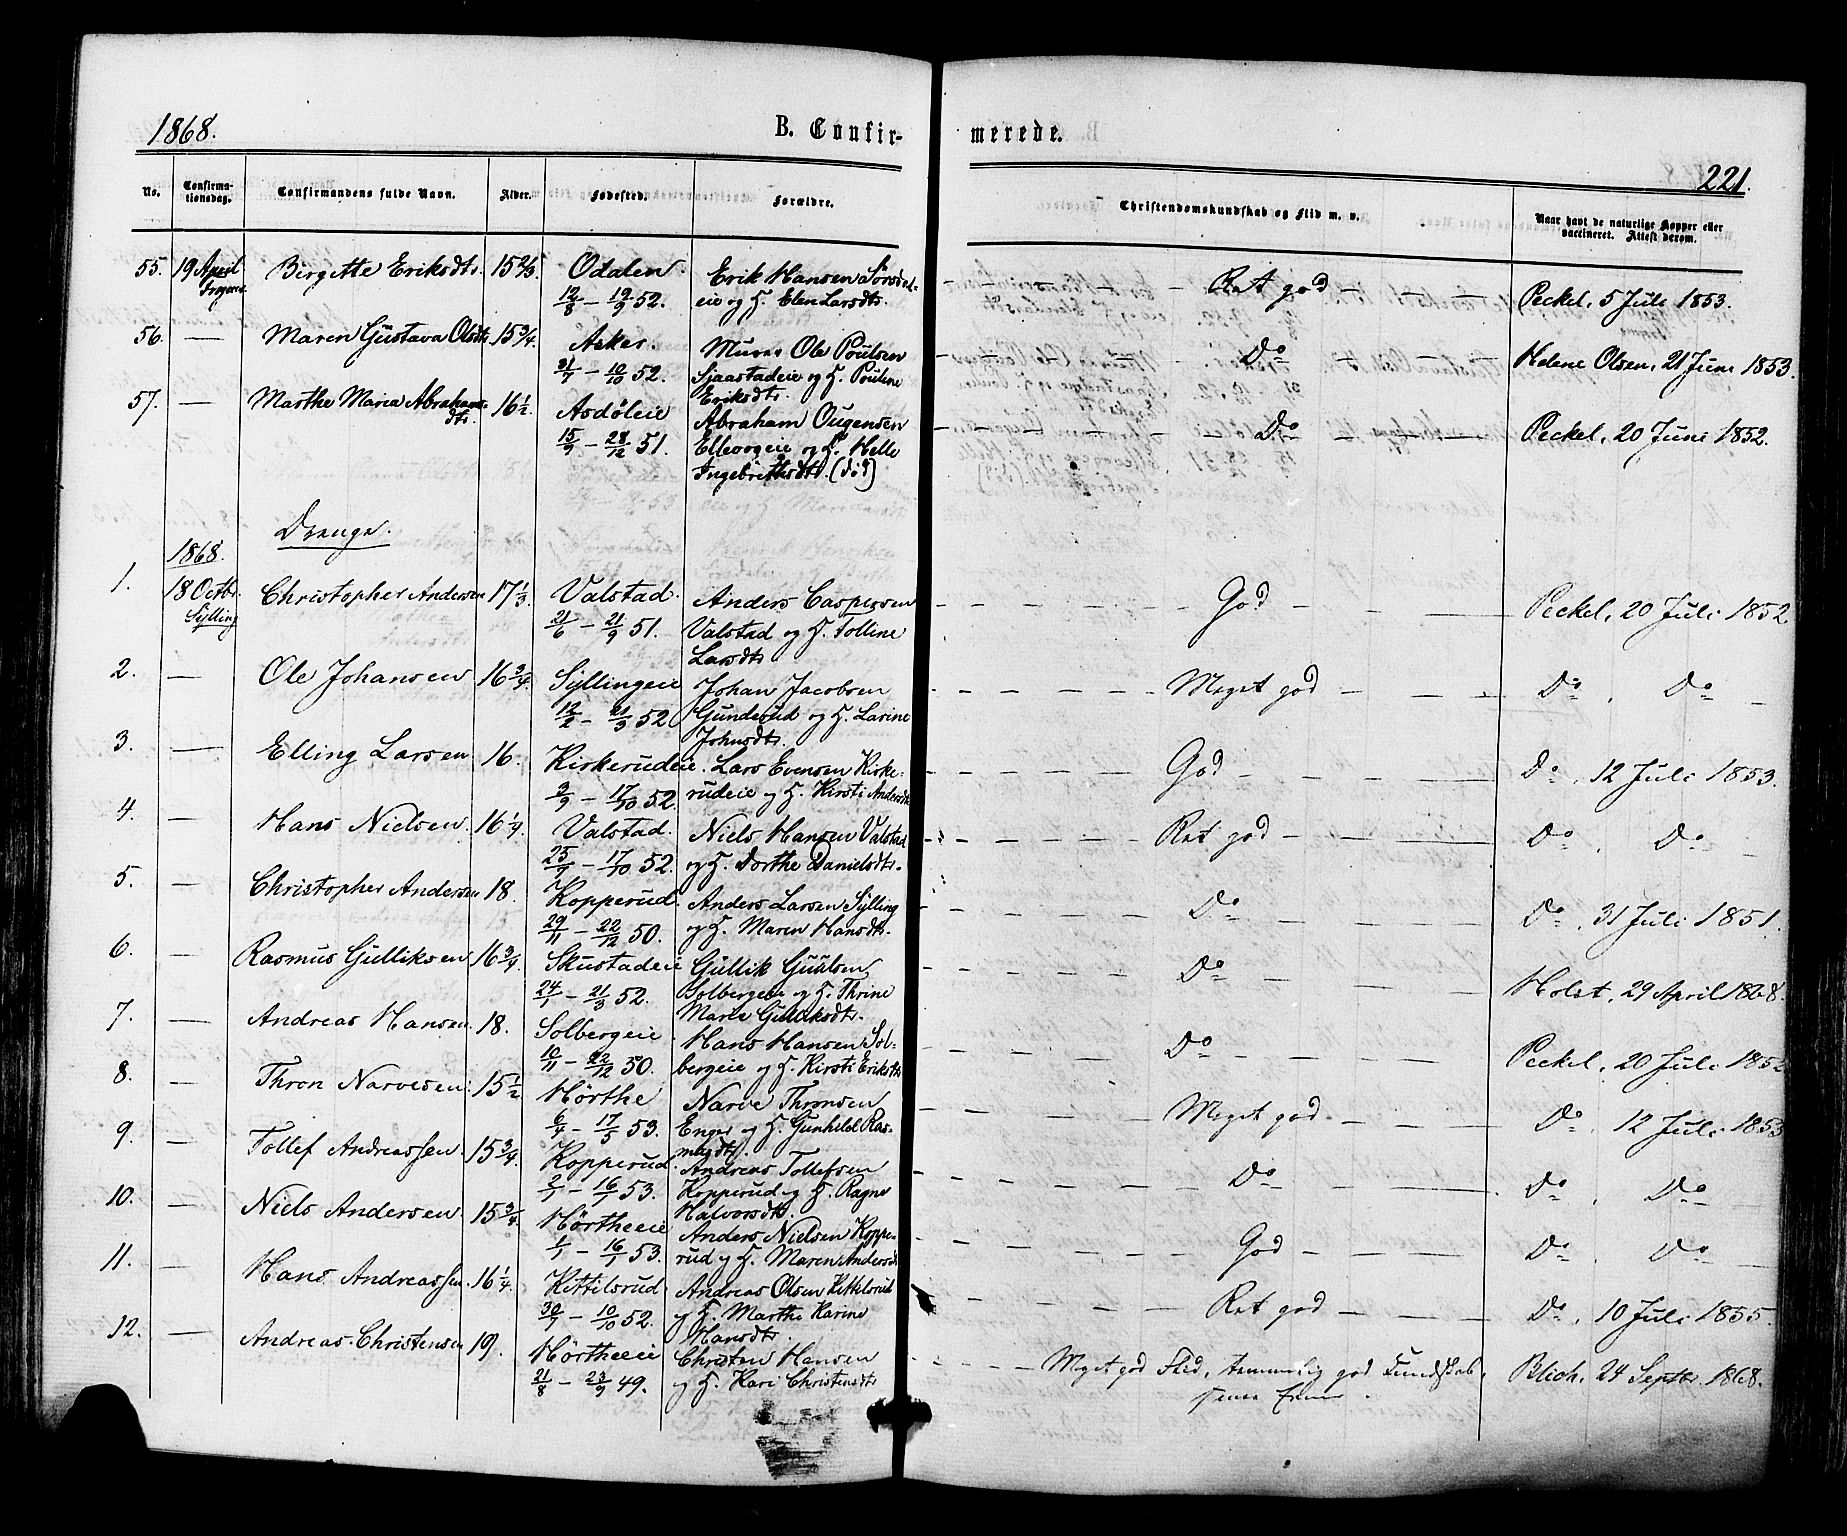 1868.
B. Confir-
merede.
221.
No.
Confirma-
tionsdag.
Confirmandens fulde Navn.
Alder.
Fødested.
Forældre.
Christendomskundskab og Flid m. v.
Naar havt de naturlige Kopper eller
vaccineret. Attest derom.
55. 19 April Birgitte Eriksdtr. 15 2/3 Odalen. Erik Hansen Sørsdal- — Ret god — Peckel, 5 Juli 1853.
12/8 – 19/9 52. eie og H. Elen Larsdtr.
56. — Maren Gustava Olsdtr 15 3/4 Asker. Murer Ole Poulsen — Do — Helene Olsen, 21 Juni 1853.
31/7 – 10/10 52. Sjaastadeie og H. Pouline
Eriksdtr.
57. — Marthe Maria Abrahams- 16 1/2. Asdøleie Abraham Ougensen — Do — Peckel, 20 Juni 1852.
dtr. 15/9 – 28/12 51. Ellevogeie og H. Helle
Ingebrittsdtr. (død)
Drenge.
1868.
1. 18 Octbr. Christopher Andersen 17 1/3. Valstad. Anders Caspersen — God — Peckel, 20 Juli 1852
Sylling 21/6 – 21/9 51. Valstad og H. Tolline
Larsdtr
2. — Ole Johansen 16 3/4. Syllingeie Johan Jacobsen — Meget god — Do, Do —
12/2 – 21/3 52 Gunderud og H. Larine
Johnsdtr.
3. — Elling Larsen 16. Kirkerudeie. Lars Evensen Kirke- — God — Do, 12 Juli 1853.
3/9 – 17/10 52. rudeie og H. Kirsti Andersdtr
4. — Hans Nielsen. 16 1/4. Valstad. Niels Hansen Valstad — Ret god — Do, Do —
25/7 – 17/10 52. og H. Dorthe Danielsdtr.
5. — Christopher Andersen 18. Kopperud. Anders Larsen Sylling — Do — Do, 31 Juli 1851.
29/11 – 22/12 50. og H. Maren Hansdtr.
6. — Rasmus Gulliksen 16 3/4. Skustadeie Gullik Gulülsen — Do — Holst, 29 April 1868.
24/1 – 21/3 52. Solbergeie og H. Thrine
Marie Gulliksdtr.
7. — Andreas Hansen. 18. Solbergeie Hans Hansen Sol- — Do — Peckel, 20 Juli 1852
10/11 – 22/12 50. bergeie og H. Kirsti Eriksdtr
8. — Thron Narvesen. 15 1/2 Hörthe Narve Thronsen — Meget god. — Do, 12 Juli 1853
6/4 – 17/5 53. Enger og H. Gunhild Ras-
musdtr.
9. — Tollef Andreassen. 15 3/4. Kopperud. Andreas Tollefsen — Do — Do, Do —
2/1 – 16/1 53. Kopperud og H. Ragne
Halvorsdtr.
10. — Niels Andersen. 15 3/4. Hörtheeie Anders Nielsen Koppe- — God — Do, Do —
1/1 – 16/1 53. rud og H. Maren Andersdtr
11. — Hans Andreassen. 16 1/4. Kittilsrud. Andreas Olsen Kittilsrud — Ret god — Do, 10 Juli 1855.
30/7 – 10/10 52. og H. Marthe Karine
Hansdtr.
12. — Andreas Christensen 19. Hörtheeie Christen Hansen — Meget god Flid, temmelig god Kundskab, Blich, 24 Septbr. 1868.
21/8 – 23/9 49. og H. Kari Christensdtr